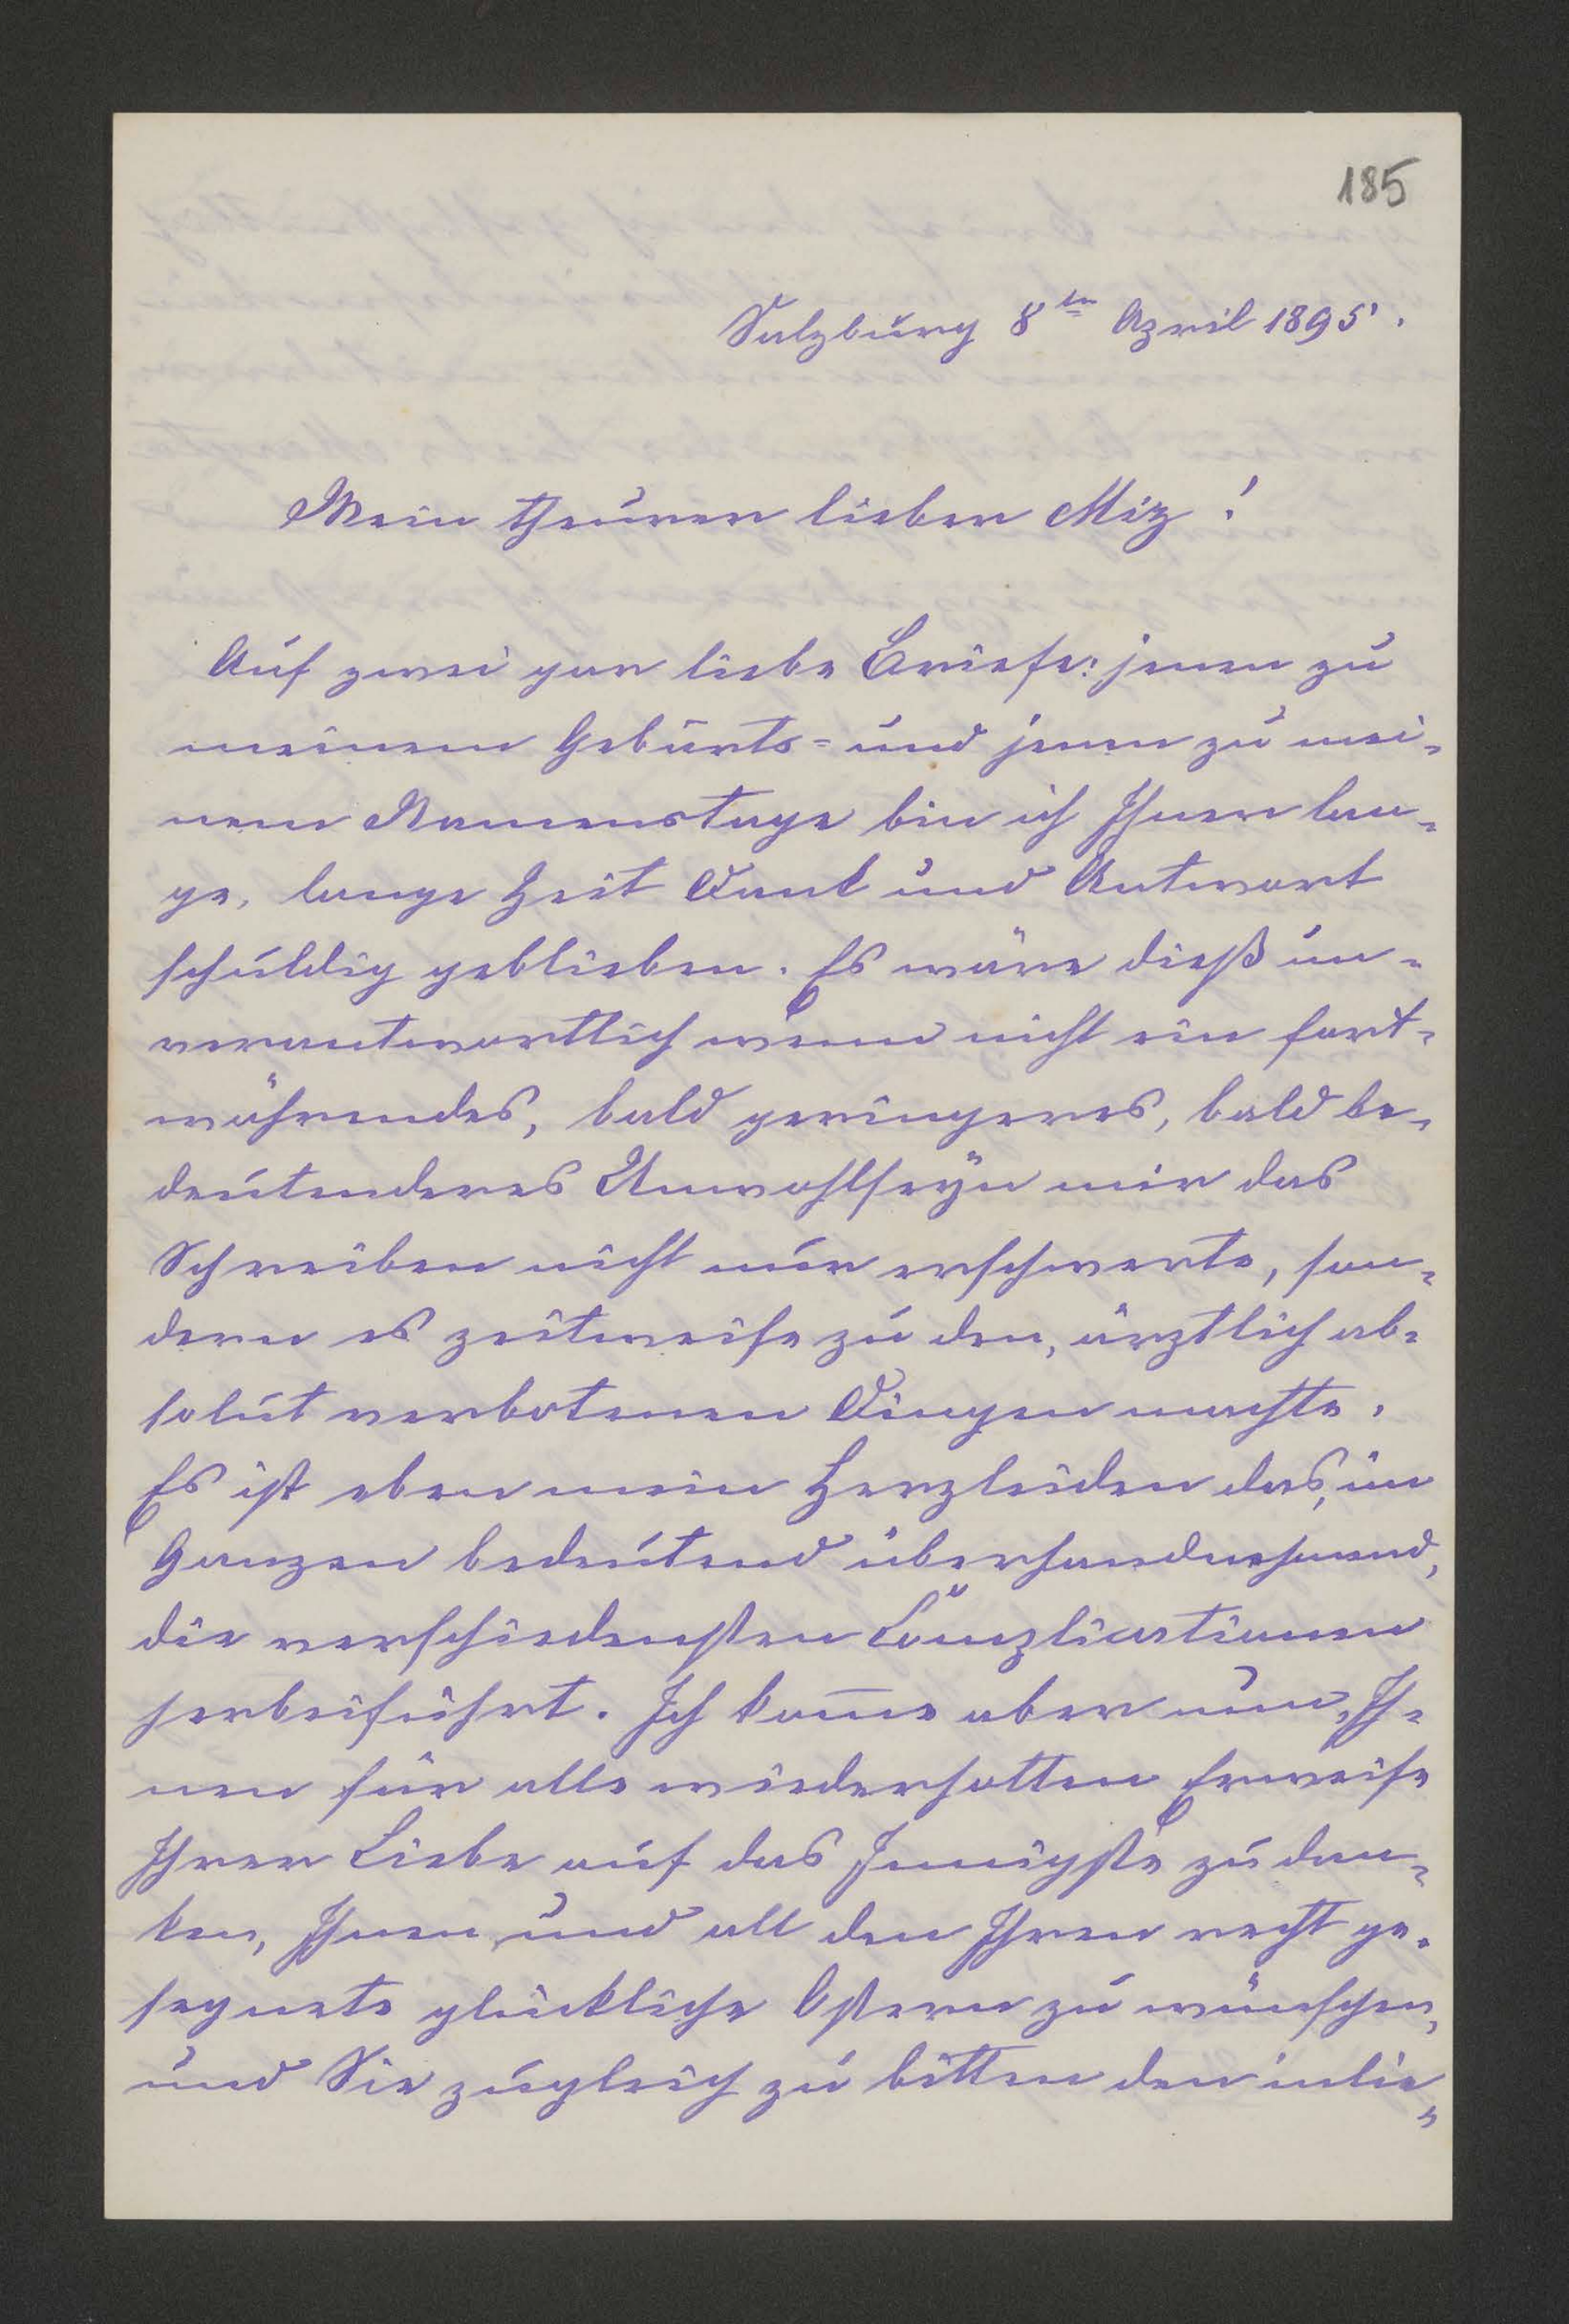 185
Salzburg 8ten April 1895.
Mein theurer lieber Miz!
Auf zwei gar liebe Briefe: jenen zu
meinem Geburts= und jenen zu mei-
nem Namenstage bin ich Ihnen lan-
ge, lange Zeit Dank und Antwort
schuldig geblieben. Es wäre dieß un-
verantwortlich wenn nicht ein fort-
währendes, bald geringeres, bald be-
deutenderes Unwohlseÿn mir das
Schreiben nicht nur erschwerte, son-
dern es zeitweise zu den, ärztlich ab-
solut verbotenen Dingen machte.
Es ist eben mein Herzleiden das, im
Ganzen bedeutend überhandnehmend,
die verschiedensten Complicationen
herbeiführt. Ich kom̅e aber nun, Ih-
nen für alle wiederholten Erweise
Ihrer Liebe auf das Innigste zu dan-
ken, Ihnen und all den Ihren recht ge-
segnete glückliche Ostern zu wünschen,
und Sie zugleich zu bitten den inlie-